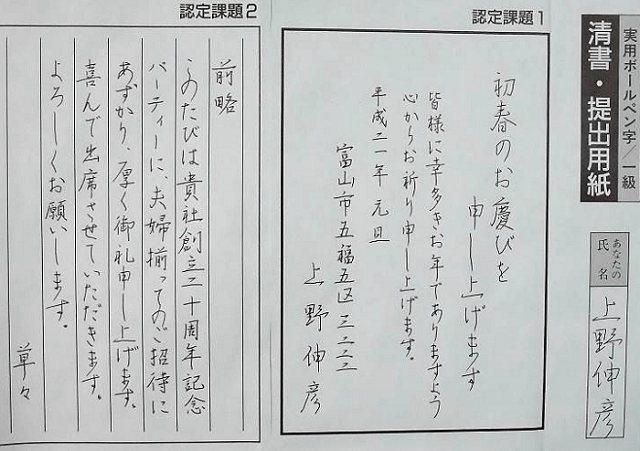 実用ボールペン字／一級
清書・提出用紙
あなたの
氏名
上野伸彦
認定課題1
初春のお慶びを
申し上げます
皆様に幸多きお年でありますよう
心からお祈り申し上げます。
平成二一年 元旦
富山市五福五区三二二二
上野伸彦
認定課題2
前略
このたびは貴社創立二十周年記念
パーティーに、夫婦揃ってのご招待に
あずかり、厚く御礼申し上げます。
喜んで出席させていただきます。
よろしくお願いします。
草々